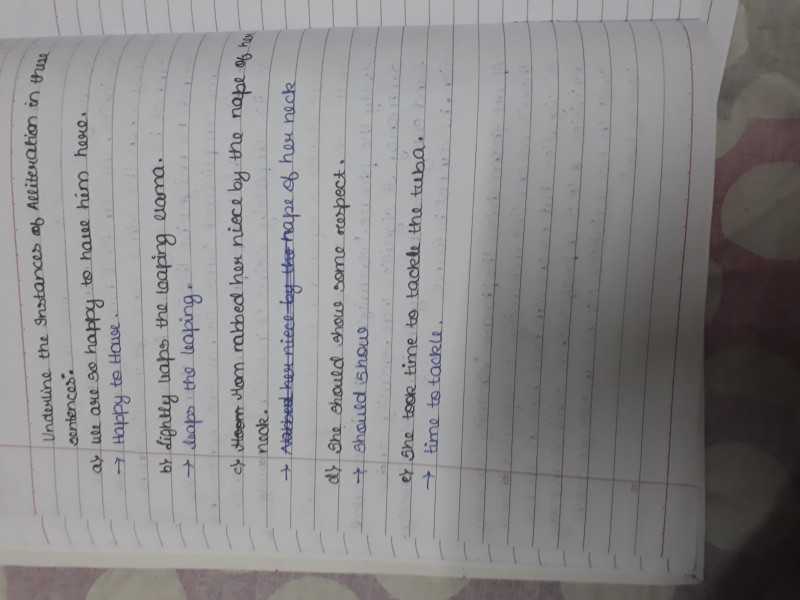 Underline the Instances of Alliteration in these
sentences:
a) We are so happy to have him here.
→ Happy to Have.
b) Lightly leaps the leaping llama.
→ leaps the leaping.
c) Mom Mom nabbed her niece by the nape of her
neck.
→ Nabbed her niece by the nape of her neck
d) She should show some respect.
→ should show
e) She took time to tackle the tuba.
→ time to tackle.